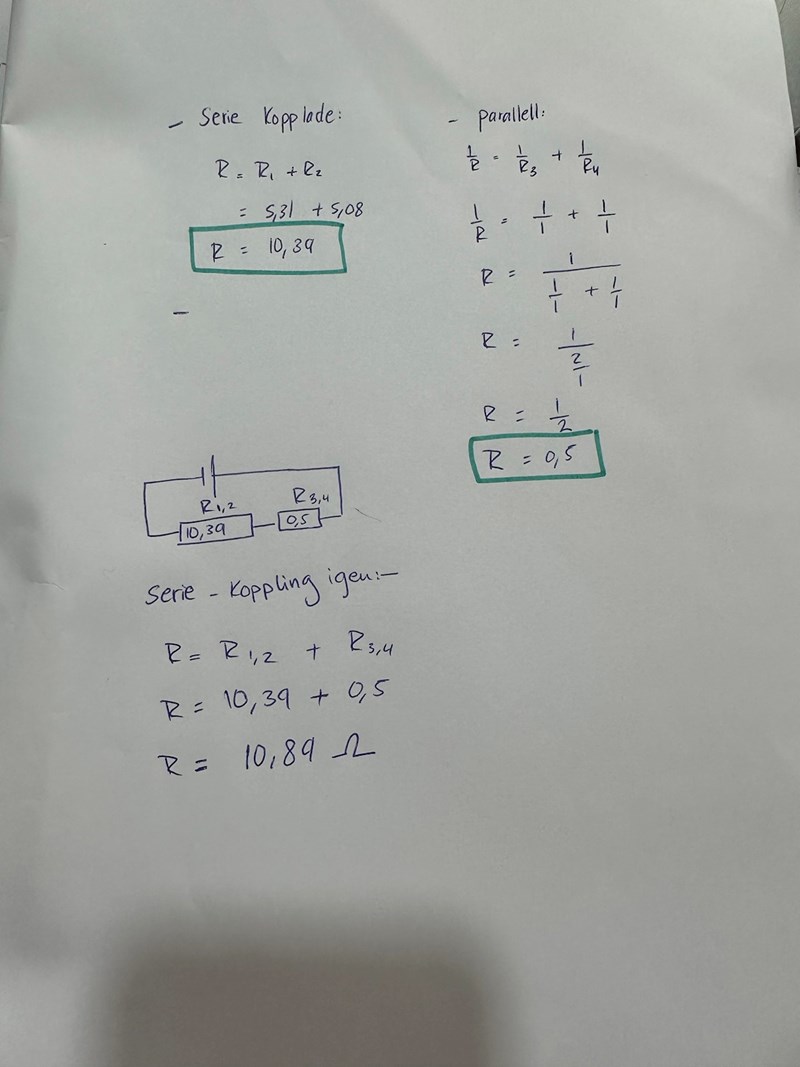 - Serie Kopplade:
R = R₁ + R₂
= 5,31 + 5,08
R = 10,39
-
- parallell:
1/R = 1/R₃ + 1/R₄
1/R = 1/1 + 1/1
R = 1/(1/1 + 1/1)
R = 1/(2/1)
R = 1/2
R = 0,5
R₁,₂ R₃,₄
10,39 0,5
Serie - Koppling igen:-
R = R₁,₂ + R₃,₄
R = 10,39 + 0,5
R = 10,89 Ω